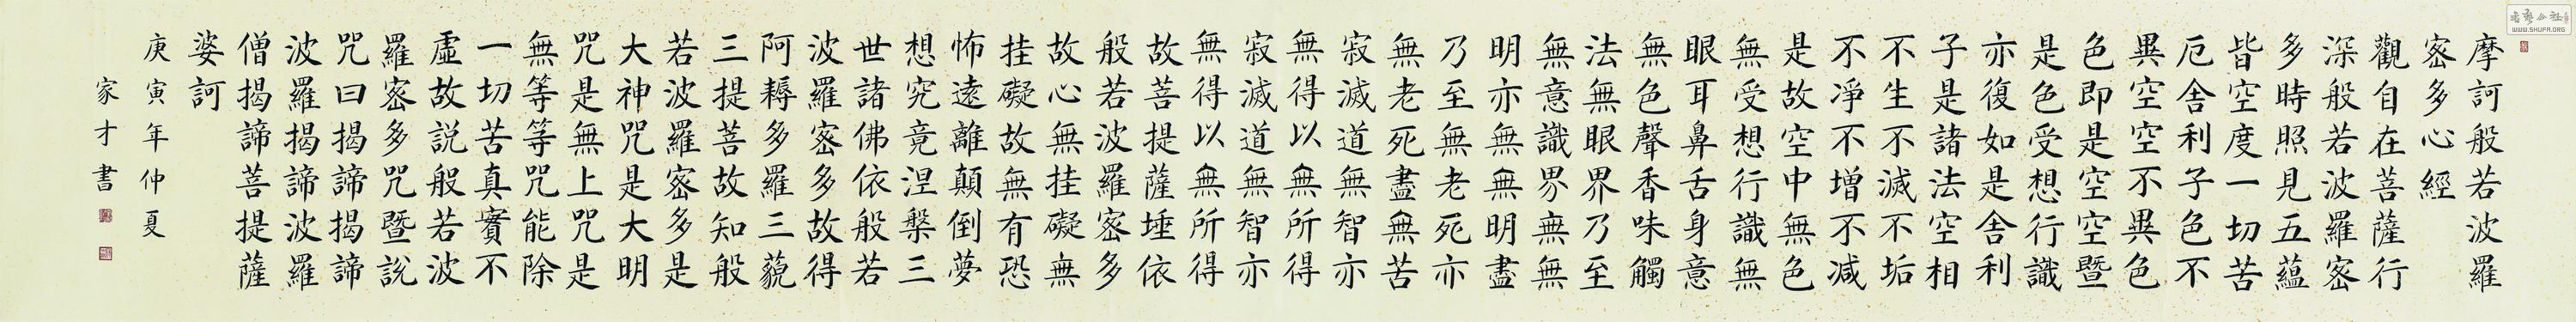 摩訶般若波羅
密多心經
觀自在菩薩行
深般若波羅密
多時照見五蘊
皆空度一切苦
厄舍利子色不
異空空不異色
色即是空空暨
是色受想行識
亦復如是舍利
子是諸法空相
不生不滅不垢
不淨不增不減
是故空中無色
無受想行識無
眼耳鼻舌身意
無色聲香味觸
法無眼界乃至
無意識界無無
明亦無無明盡
乃至無老死亦
無老死盡無苦
寂滅道無智亦
無得以無所得
寂滅道無智亦
無得以無所得
故菩提薩埵依
般若波羅密多
故心無挂礙無
挂礙故無有恐
怖遠離顛倒夢
想究竟涅槃三
世諸佛依般若
波羅密多故得
阿耨多羅三藐
三提菩故知般
若波羅密多是
大神咒是大明
咒是無上咒是
無等等咒能除
一切苦真實不
虛故説般若波
羅密多咒暨說
咒曰揭諦揭諦
波羅揭諦波羅
僧揭諦菩提薩
婆訶
庚寅年仲夏
家才書
WWW.SHUFA.ORG